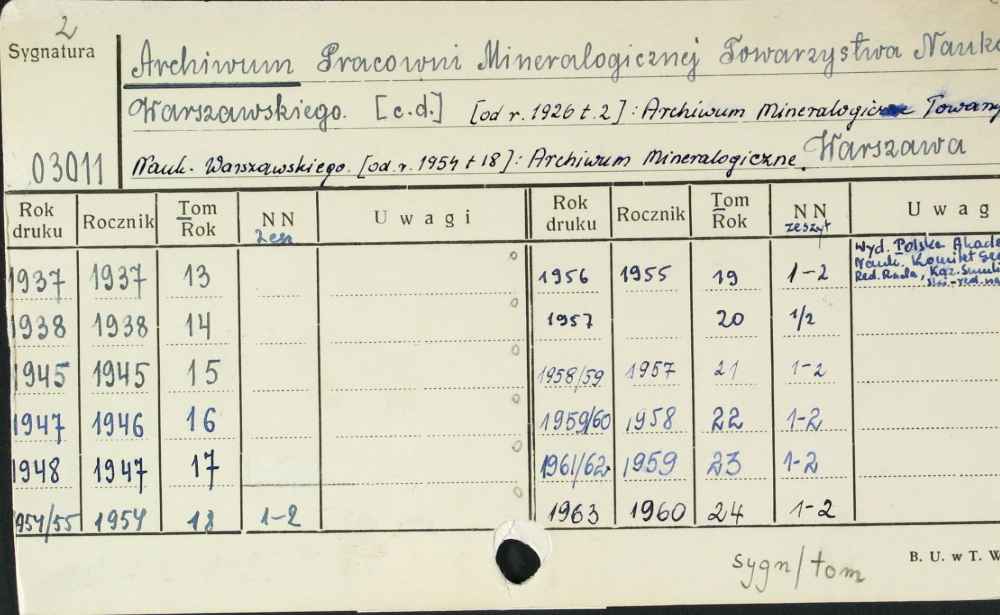 2
Sygnatura
Archiwum Pracowni Mineralogicznej Towarzystwa Nauko
Warszawskiego. [c.d.] [od r. 1926 t. 2] : Archiwum Mineralogiczne Towarz
03011
Nauk. Warszawskiego. [od r. 1954 t 18] : Archiwum Mineralogiczne. Warszawa
Rok druku Rocznik Tom Rok NN Zesz Uwagi Rok druku Rocznik Tom Rok NN zeszyt Uwag
1937 1937 13 1956 1955 19 1-2 Wyd. Polska Akade
Nauk. Komitet
Red. Rada, Kaz.
1938 1938 14 1957 20 1/2
1945 1945 15 1958/59 1957 21 1-2
1947 1946 16 1959/60 1958 22 1-2
1948 1947 17 1961/62 1959 23 1-2
1954/55 1954 18 1-2 1963 1960 24 1-2
sygn/tom
B. U. w T. W